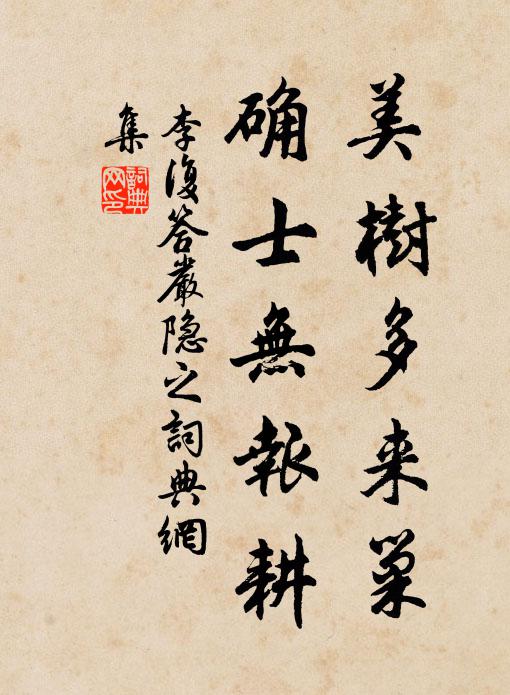 美樹多来巢
确士無報耕
李復答嚴隐之詞典網
集
詞典
网印